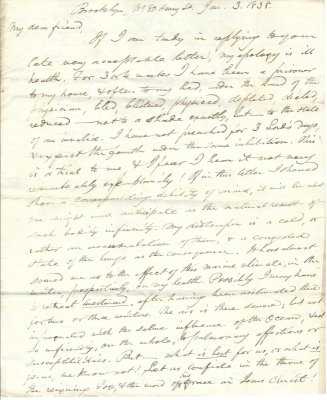 Brooklyn, No. 80 Henry St. Jan. 3. 1838.
My dear friend,
If I am tardy in replying to your
late very acceptable letter, my apology is ill
health. For 3 or 4 weeks I have been a prisoner
to my house & often to my bed, under the hand of the
physician, bled, blistered, physiced, depleted,
reduced — not to a shade exactly, but — to the state
of an invalid. I have not preached for 3 Lord's days
& expect the fourth under the same inhibition. This
is a trial to me, & I fear I bear it not very
remarkably If in this letter I should
show a corresponding debility of mind, it will be what
one might well anticipate as the natural result of
such bodily infirmity. My distemper is a cold, or
rather an accumulation of them, & a congested
state of the lungs as the consequence.
me as to the effect of this marine climate, in the
winter, prospectively, on my health. Possibly I may have
to retreat westward, after having been acclimated there
for two or three winters. The air is there severe, but not
impregnated with the saline influence of the Ocean, & not
so injurious, on the whole, to pulmonary affections or
susceptibilities. But — what is best for us, or what is
we know not! Let us confide in the throne of
the & the word of his Grace in Jesus Christ!